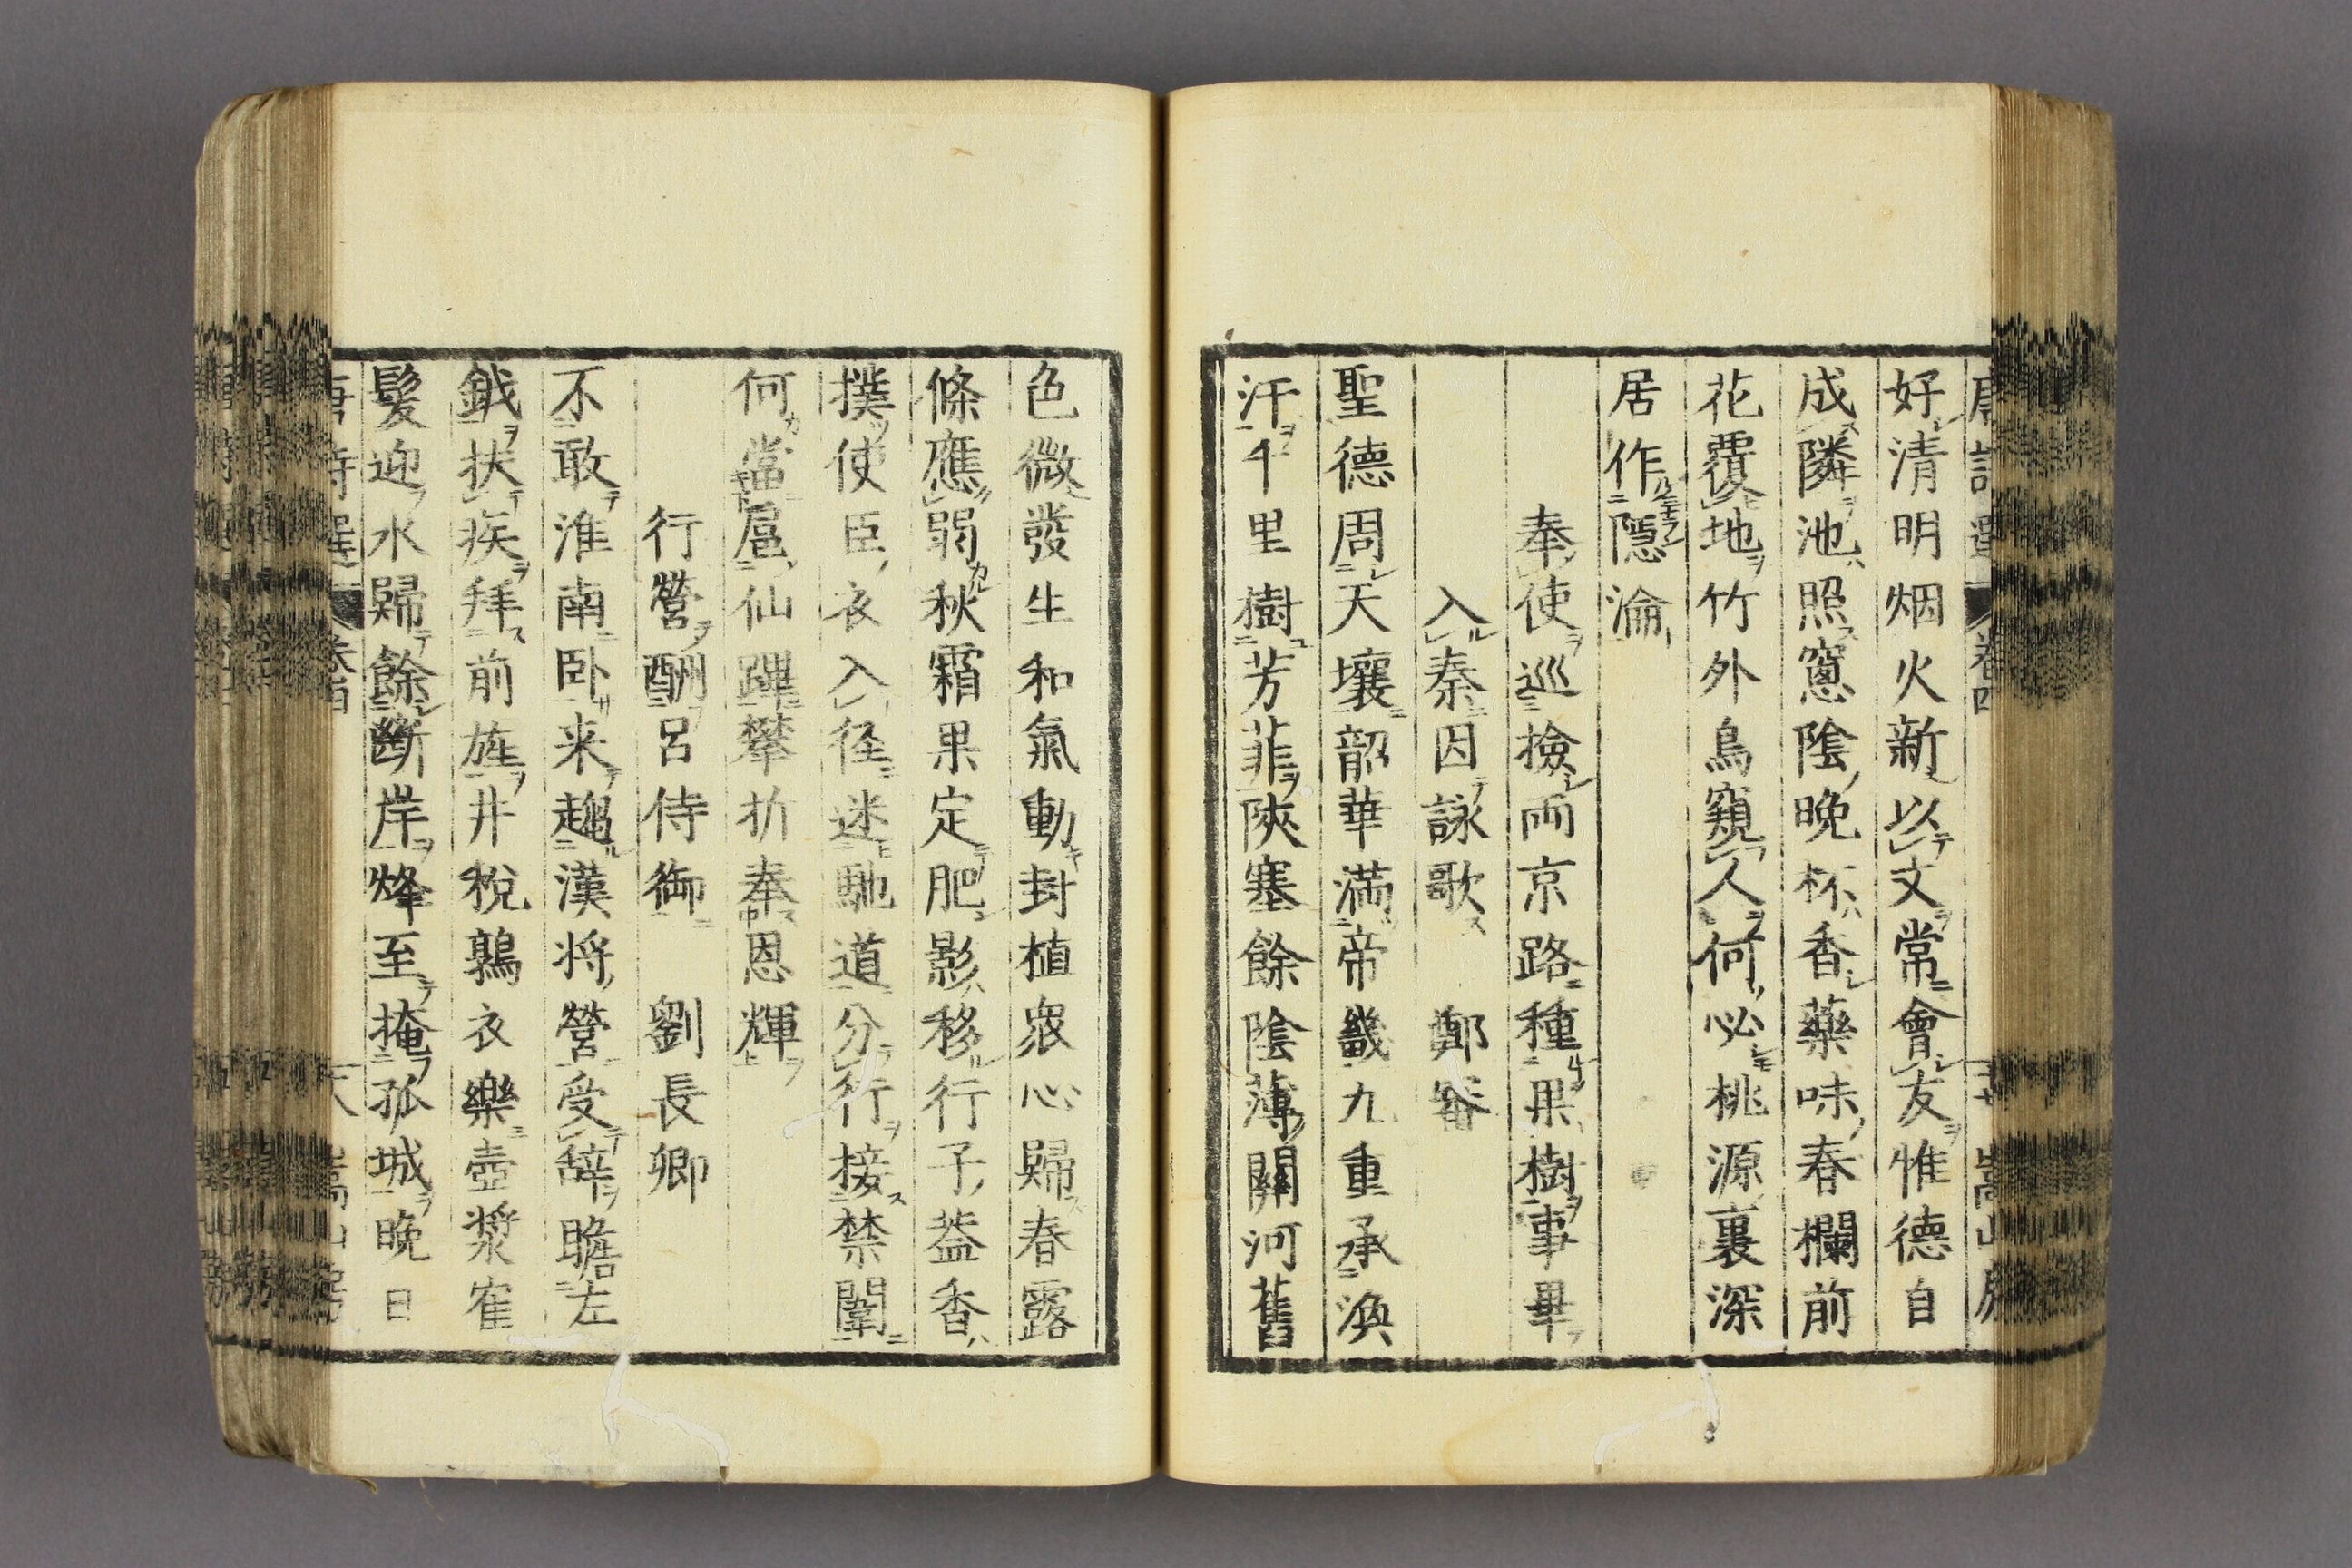 好清明烟火新以文常會友惟德自
成隣池照窻陰晚杯香藥味春欄前
花覆地竹外鳥窺人何必桃源裏深
居作隱淪
奉使巡撿兩京路種果樹事畢
入秦因詠歌　鄭審
聖德周天壤韶華滿帝畿九重承渙
汗千里樹芳菲陝塞餘陰薄關河舊
色微發生和氣動封植眾心歸春露
條應弱秋霜果定肥影移行子蓋香
撲使臣衣入徑迷馳道分行接禁闈
何當扈仙蹕攀折奉恩輝
行營酬呂侍御　劉長卿
不敢淮南卧来趨漢将營受辞瞻左
鉞扶疾拜前旌井稅鶉衣樂壺漿隺
髮迎水歸餘斷岸烽至掩孤城晚日